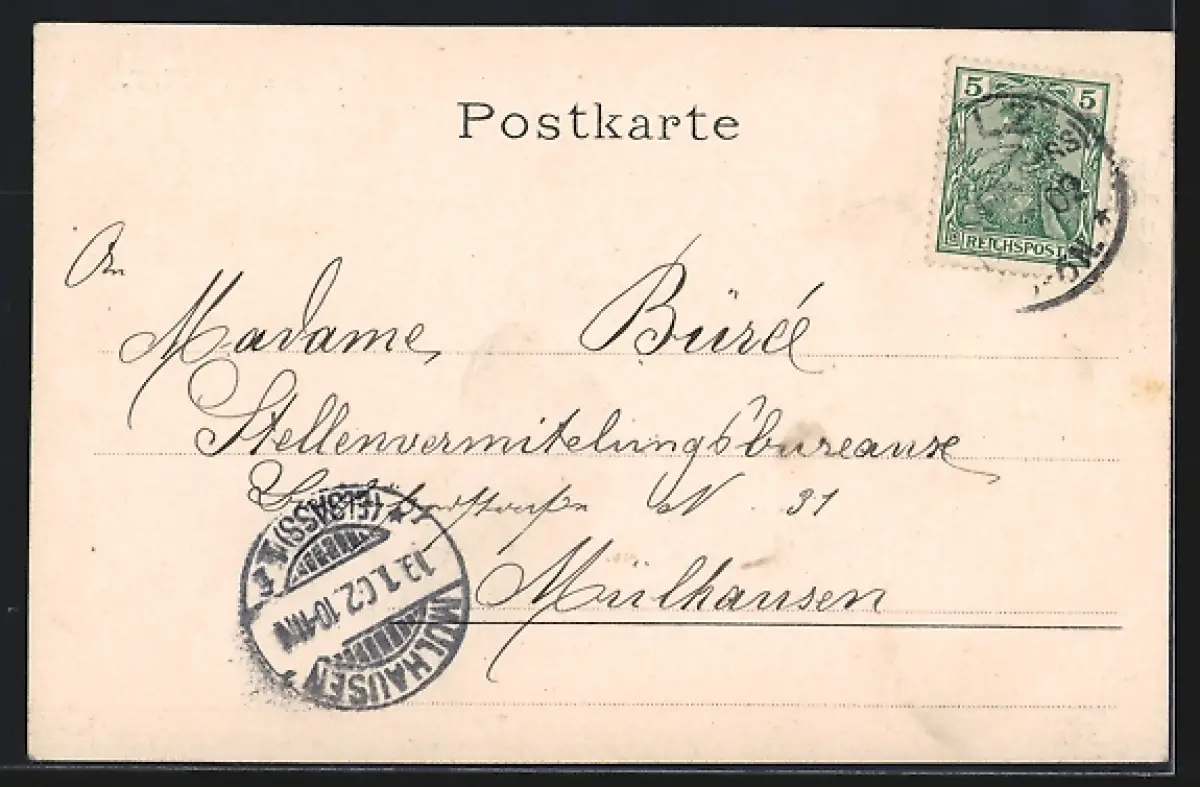 Postkarte
5 5
REICHSPOST
LZ
02
*
An
Madame Bürée
Stellenvermitelungsbureause
N. 31
Mülhausen
MÜLHAUSEN
(ELSASS)
13.1.02. 10-11N